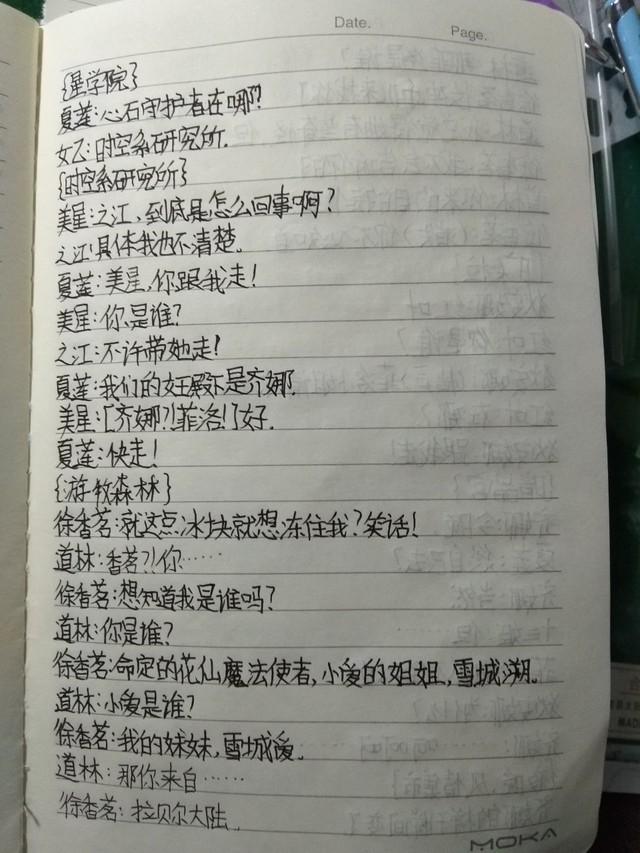 Date.
Page.
{星学院}
夏莲:心石守护者在哪?
女乙:时空系研究所.
{时空系研究所}
美星:之江,到底是怎么回事啊?
之江:具体我也不清楚.
夏莲:美星,你跟我走!
美星:你是谁?
之江:不许带她走!
夏莲:我们的女王殿下是齐娜.
美星:[齐娜?!菲洛!]好.
夏莲:快走!
{游牧森林}
徐香茗:就这点冰块就想冻住我?笑话!
道林:香茗?!你……
徐香茗:想知道我是谁吗?
道林:你是谁?
徐香茗:命定的花仙魔法使者,小爱的姐姐,雪城溯.
道林:小爱是谁?
徐香茗:我的妹妹,雪城爱.
道林:那你来自……
徐香茗:拉贝尔大陆.
MOKA